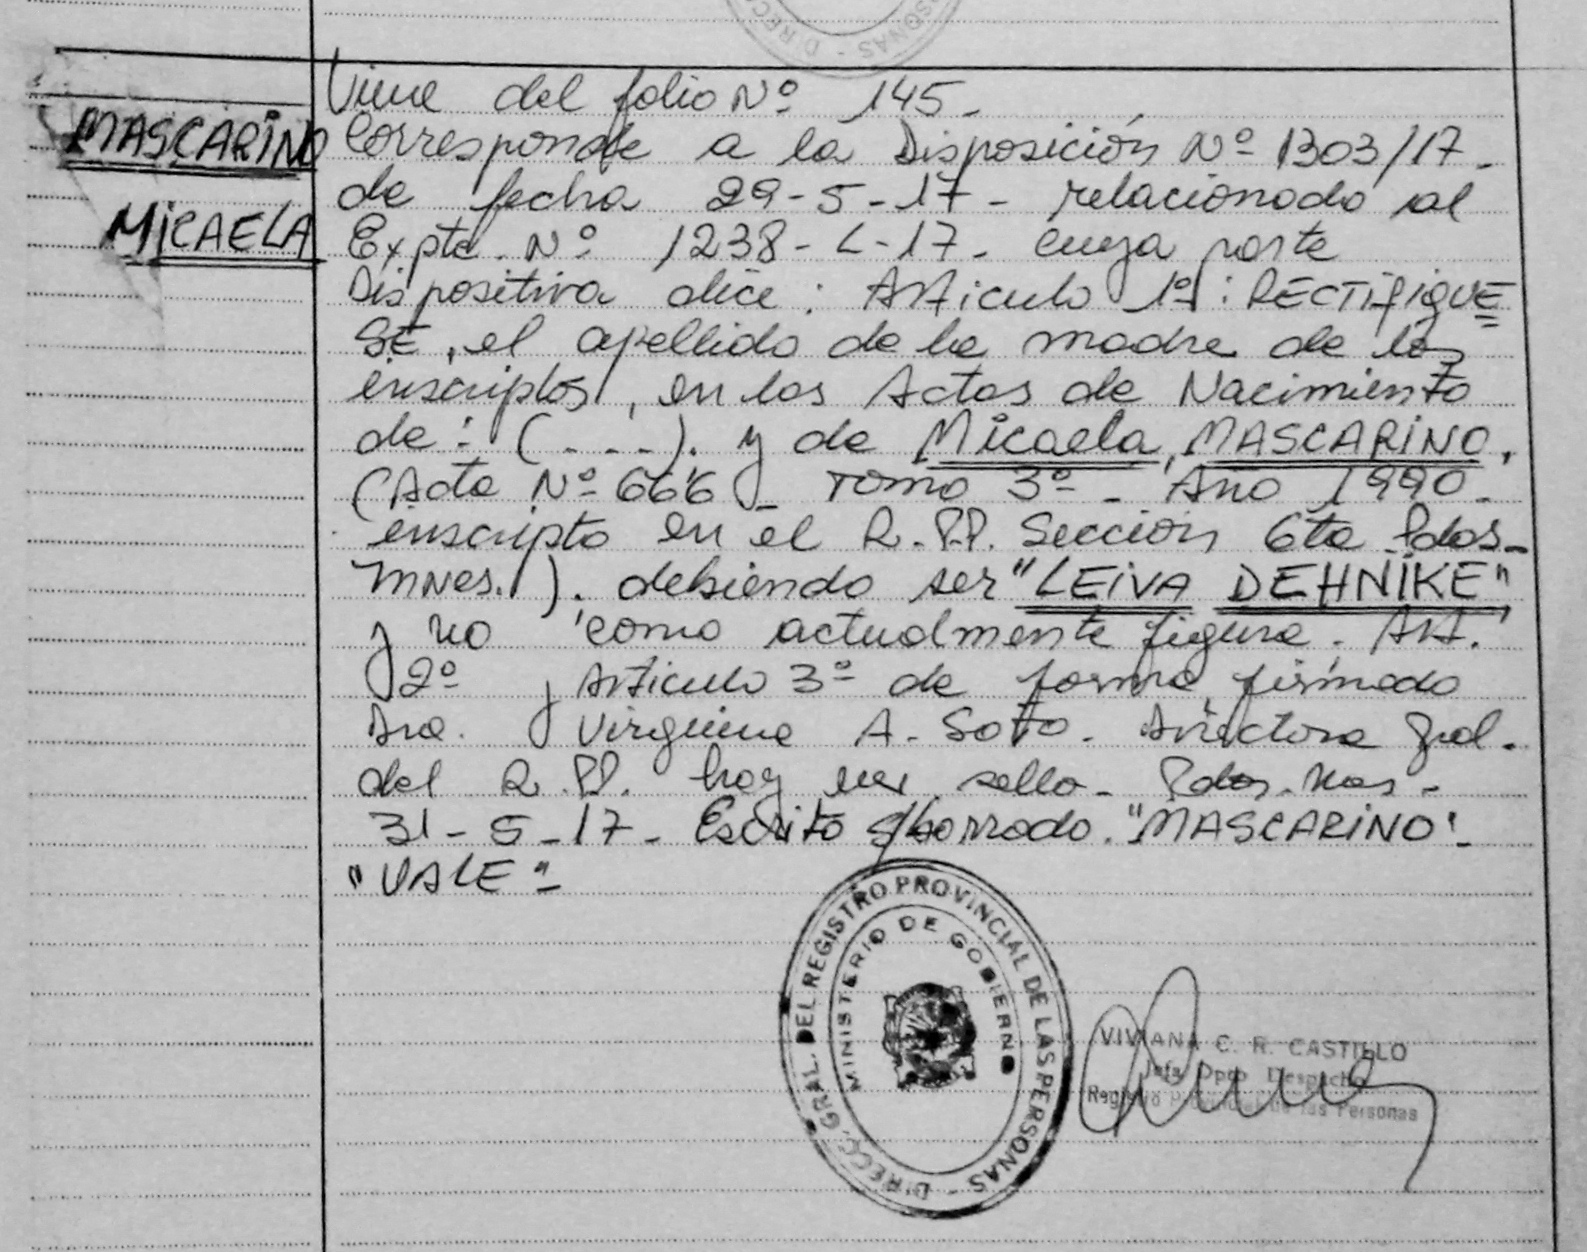 MASCARINO
MICAELA
Viene del folio Nº 145-
Corresponde a la Disposición Nº 1303/17-
de fecha 29-5-17- relacionado al
Expte. Nº 1238-L-17- cuya parte
Dispositiva dice: Articulo 1º: RECTIFIQUE
SE, el apellido de la madre de los
inscriptos, en las Actas de Nacimiento
de: (---). y de Micaela, MASCARINO,
(Acta Nº 666 - Tomo 3º - Año 1990-
inscripto en el R.P.P. Sección 6ta Pdas-
Mnes.). debiendo ser "LEIVA DEHNIKE"
y no como actualmente figura. Art.
2º y Articulo 3º de forma, firmado
Dra. Virginia A. Soto. Directora Gral.
del R.P.P. hay un sello- Pdas. Mnes-
31-5-17- Escrito s/borrado. "MASCARINO"-
"VALE"-
DIRECC. GRAL. DEL REGISTRO PROVINCIAL DE LAS PERSONAS -
MINISTERIO DE GOBIERNO
VIVIANA C. R. CASTILLO
Jefa Dpto Despacho
Registro Provincial de las Personas